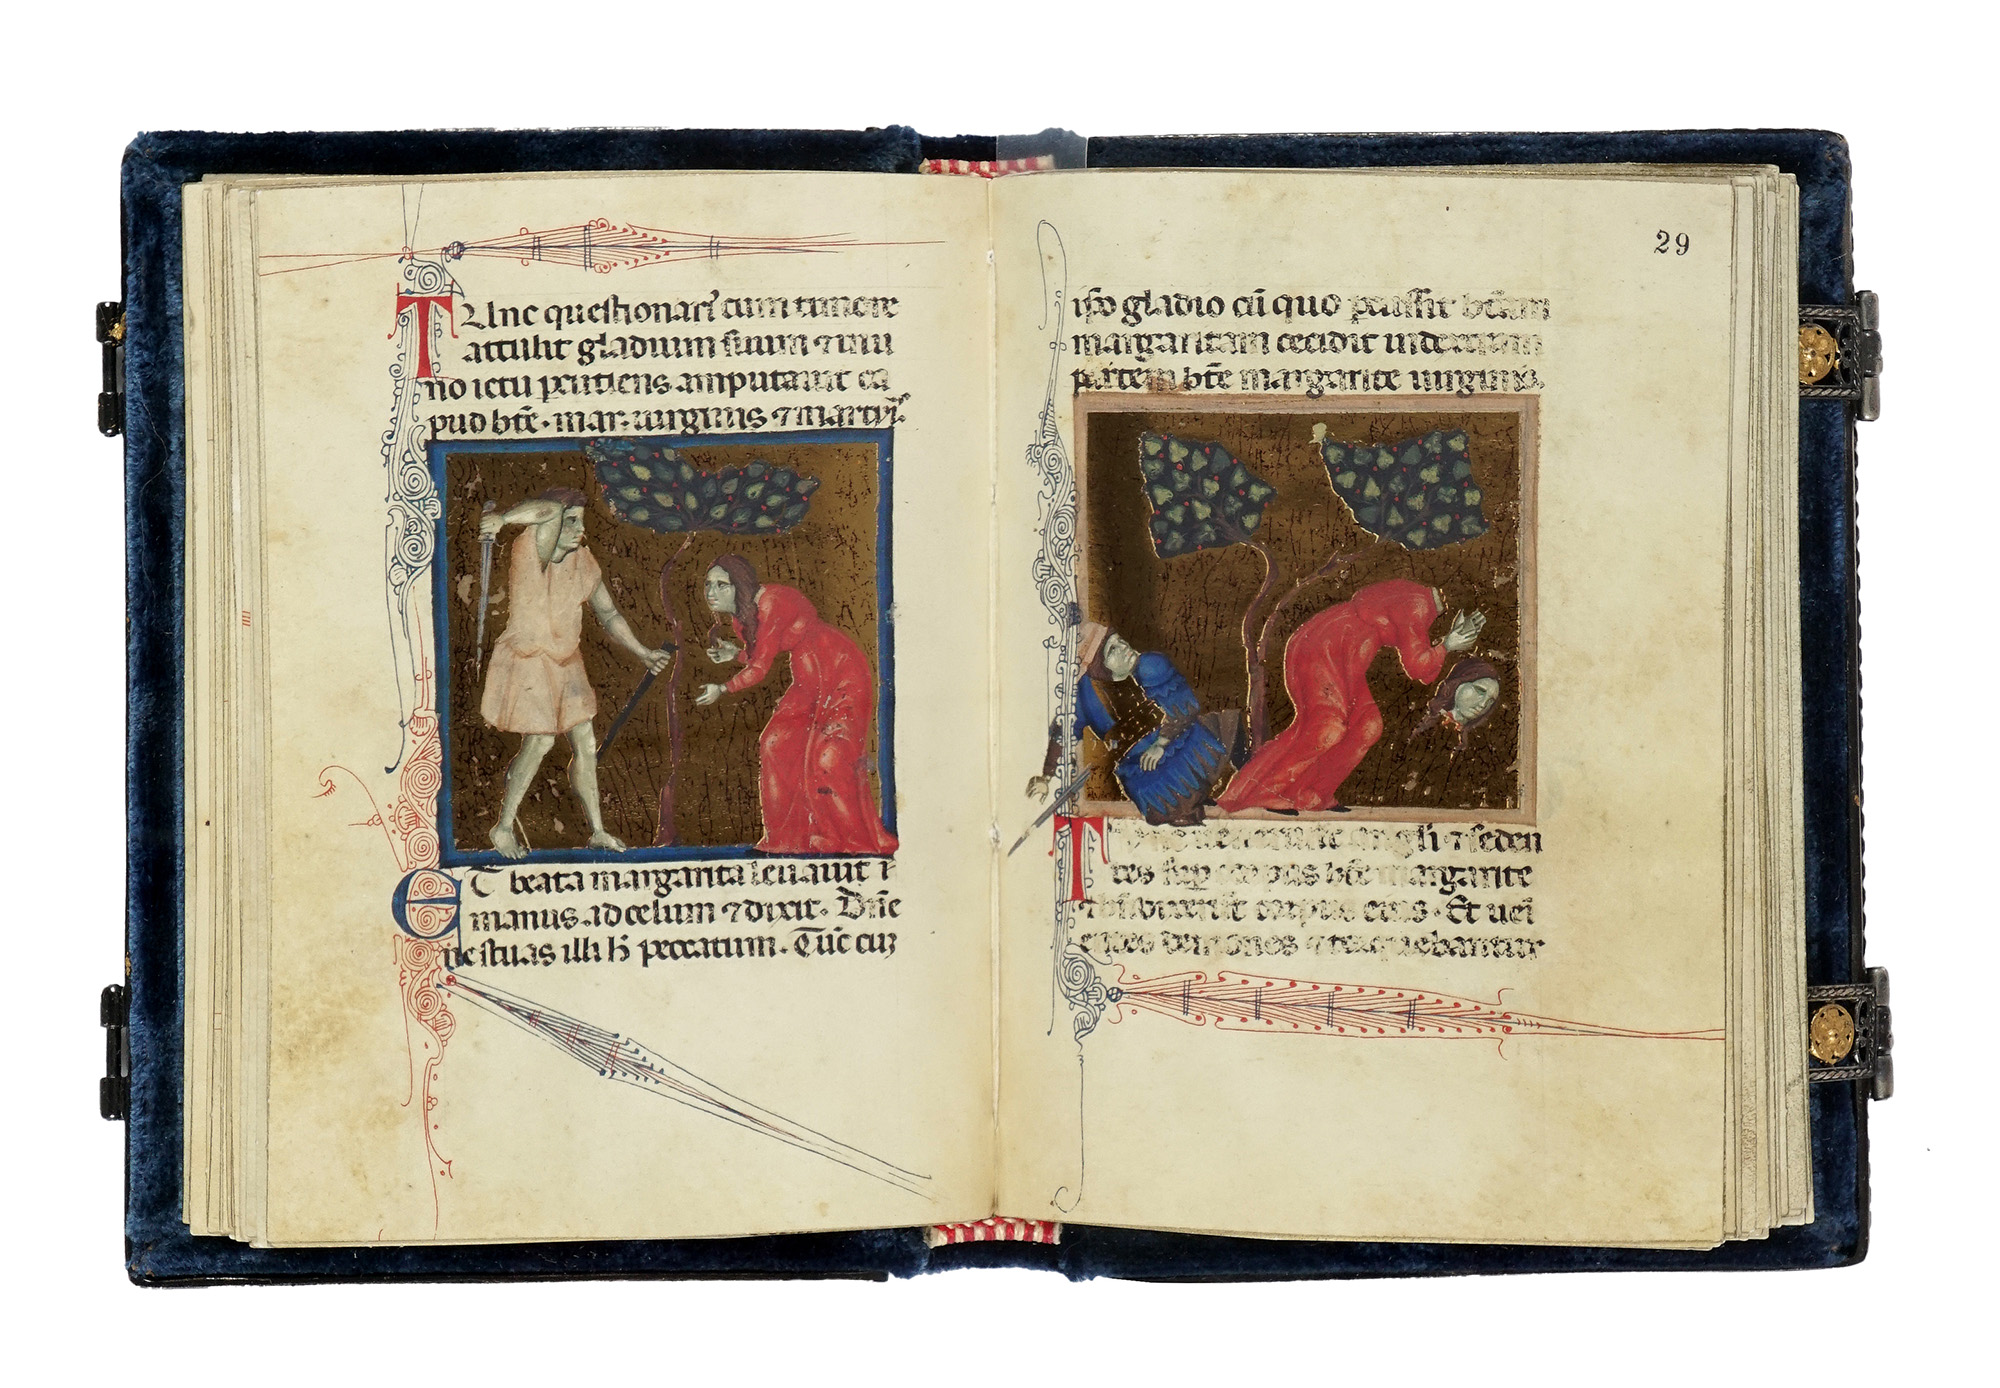 TUnc questionari' cum timore
attulit gladium suum ⁊ in u
no ictu pcutiens amputauit ca
pud bte · mar · uirginis ⁊ martyr'
ET beata margarita leuauit
manus ad celum ⁊ dixit · Dñe
ne stuas illi h̄ peccatum · Tūc cuȝ
ipo gladio cū quo pcussit btam
margaritam cecidit in dexteram
partem bte margarite uirginis.
Tunc uenerunt angeli ⁊ seden
tes sup corpus bte margarite
⁊ corpus eius · Et ueñ
demones ⁊ torquebantur
29